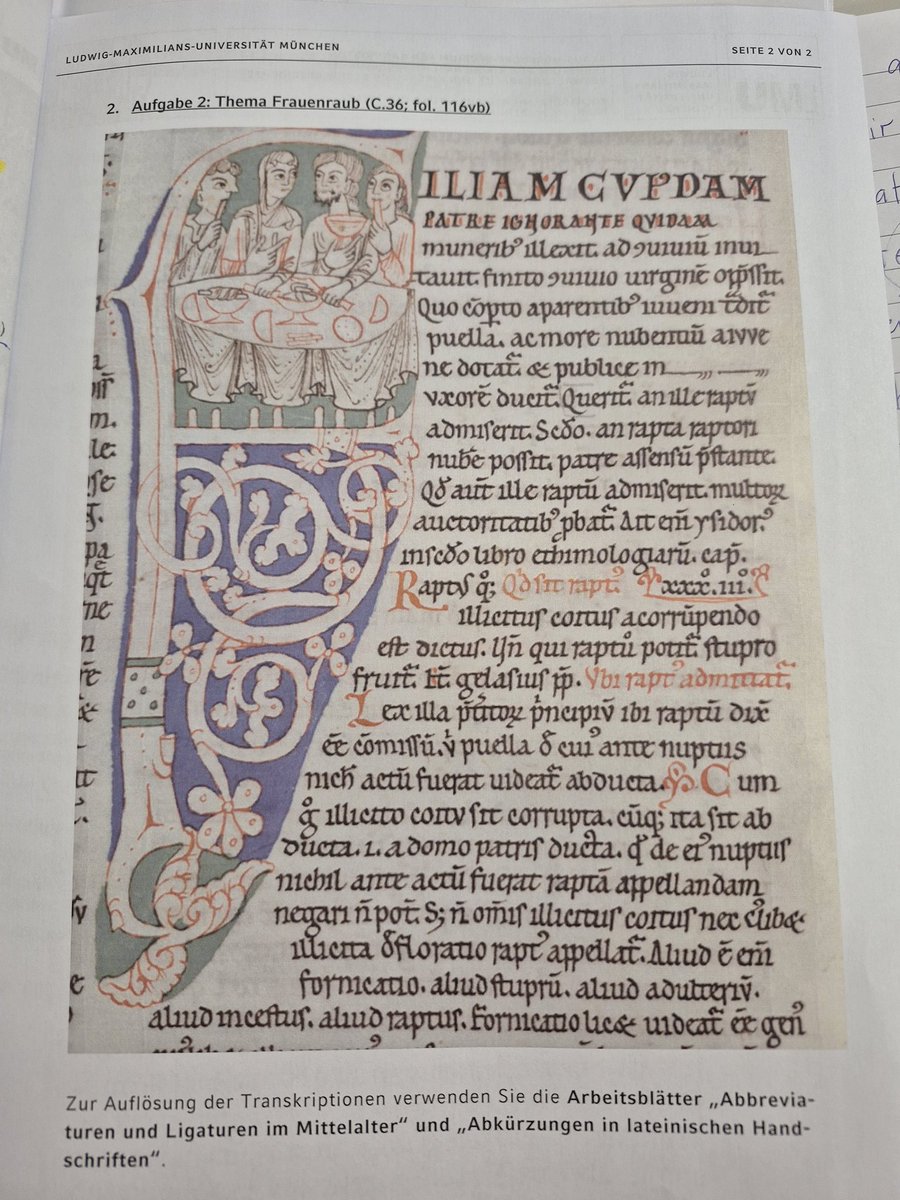 LUDWIG-MAXIMILIANS-UNIVERSITÄT MÜNCHEN
SEITE 2 VON 2
2. Aufgabe 2: Thema Frauenraub (C.36; fol. 116vb)
FILIAM CVI᷒DAM
PATRE IGNORANTE QVIDAM
munerib᷒ illexit. ad ꝯuiuiū inui
tauit. finito ꝯuiuio uirginē opp̄ssit.
Quo cōpto a parentib᷒ iuueni t̄dit᷑
puella. ac more nubentiū a iuve
ne dotat᷑. & publice in
vxorē ducit᷑. Querit᷑. an ille raptū
admiserit. Scd̄o. an rapta raptori
nub̄e possit. patre assensū p̄stante.
Qd̄ aut̄ ille raptū admiserit. multoꝝ
auctoritatib᷒ ꝓbat᷑. Ait em̄ ysidor᷒
in scd̄o libro ethimologiarū. cap̄.
Raptus qͦꝫ Qd̄ sit rapt᷒. xxxͦ. iiiͦ.
illicitus coitus a corrūpendo
est dictus. Un̄ qui raptu potit᷑ stupro
fruit᷑. It̄ gelasius pp̄. Vbi rapt᷒ admittat᷑.
Lex illa p̄titoꝝ p̄ncipiū ibi raptū dix̄
ēē cōmissū. ų puella đ cui᷒ ante nuptiis
nich̄ actū fuerat uideat᷑ abducta. Cum
gͦ illicito coitu sit corrupta. cūqꝫ ita sit ab
ducta. i. a domo patris ducta. qđ de ei᷒ nuptiis
nichil ante actū fuerat raptā appellandam
negari n̄ pot̄. Sꝫ n̄ om̄is illicitus coitus nec
illicita đfloratio rapt᷒ appellat᷑. Aliud ē em̄
fornicatio. aliud stuprū. aliud adulteriū.
aliud incestus. aliud raptus. Fornicatio lic& uideat᷑ ēē gen᷒
Zur Auflösung der Transkriptionen verwenden Sie die Arbeitsblätter „Abbrevia-
turen und Ligaturen im Mittelalter“ und „Abkürzungen in lateinischen Hand-
schriften“.